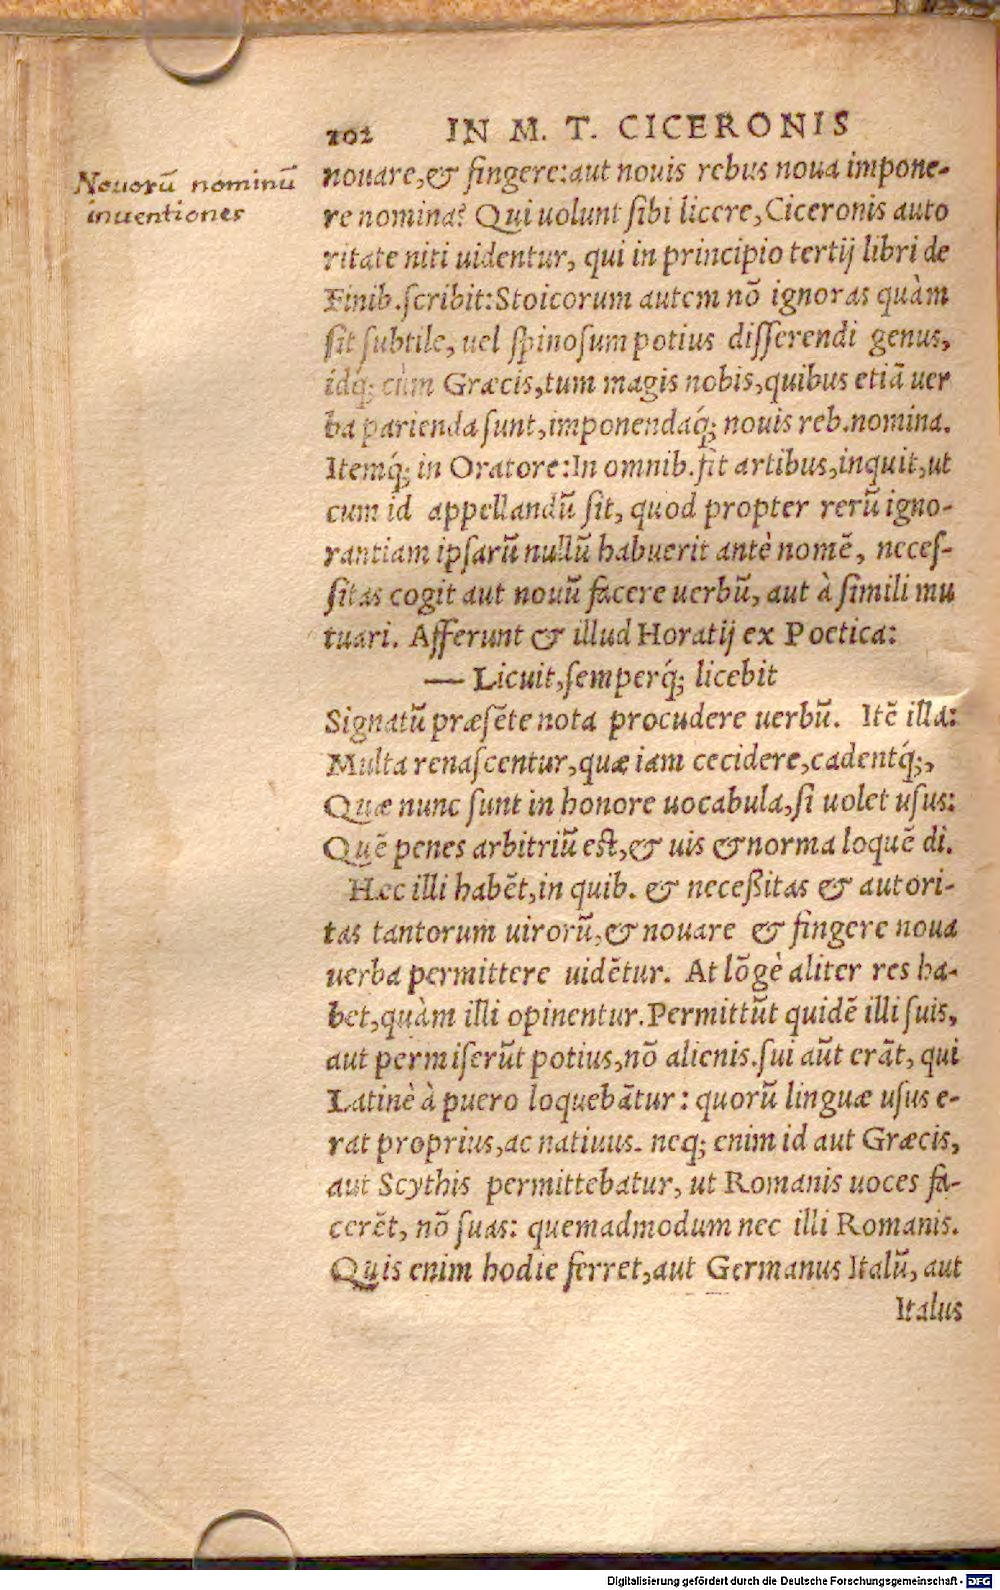 102 IN M. T. CICERONIS
Nouorū nominū
inuentiones
nouare,& fingere:aut nouis rebus noua impone-
re nomina? Qui uolunt sibi licere,Ciceronis auto
ritate niti uidentur, qui in principio tertij libri de
Finib.scribit:Stoicorum autem nō ignoras quàm
sit subtile, uel spinosum potius disserendi genus,
idq́; cùm Græcis,tum magis nobis,quibus etiā uer
ba parienda sunt,imponendaq́; nouis reb.nomina.
Itemq́; in Oratore:In omnib.sit artibus,inquit,ut
cum id appellandū sit, quod propter rerū igno-
rantiam ipsarū nullū habuerit antè nomē, neces-
sitas cogit aut nouū facere uerbū, aut à simili mu
tuari. Afferunt & illud Horatij ex Poetica:
— Licuit,semperq́; licebit
Signatū præsēte nota procudere uerbū. Itē illa:
Multa renascentur,quæ iam cecidere,cadentq́;,
Quæ nunc sunt in honore uocabula,si uolet usus:
Quē penes arbitriū est,& uis & norma loquē di.
Hæc illi habēt,in quib. & neceßitas & autori-
tas tantorum uirorū,& nouare & fingere noua
uerba permittere uidētur. At lōgè aliter res ha-
bet,quàm illi opinentur.Permittūt quidē illi suis,
aut permiserūt potius,nō alienis.sui aūt erāt, qui
Latinè à puero loquebātur: quorū linguæ usus e-
rat proprius,ac natiuus. neq; enim id aut Græcis,
aut Scythis permittebatur, ut Romanis uoces fa-
cerēt, nō suas: quemadmodum nec illi Romanis.
Quis enim hodie ferret,aut Germanus Italū, aut
Italus
Digitalisierung gefördert durch die Deutsche Forschungsgemeinschaft - DFG